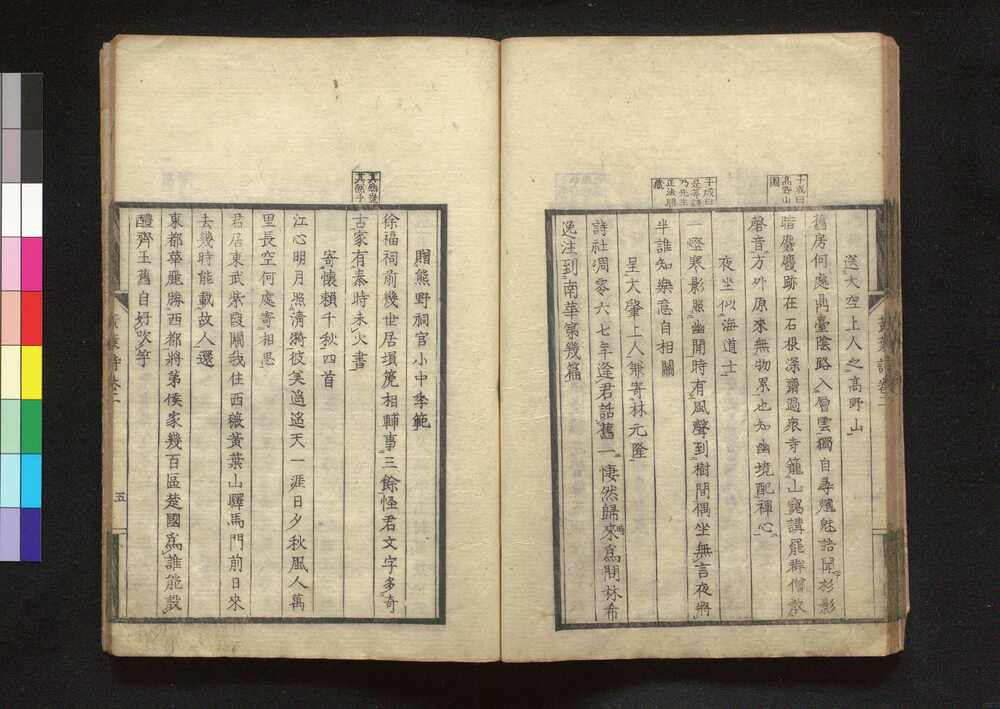 送大空上人之高野山
舊房何處幽臺陰路入層雲獨自尋魑魅語聞杉影
暗麏麚跡在石根深齋過衆寺籠山靄講罷群僧散
磬音方外原來無物累也知幽境配禪心
夜坐似海道士
一燈寒影照幽閒時有風聲到樹間偶坐無言夜將
半誰知樂意自相關
呈大肇上人兼寄林元隆
詩社凋零六七年逢君話舊一悽然歸來爲問林希
逸注到南華第幾篇
子成曰
高野山
圖
子成曰
是等詩
乃先生
正法眼
藏
黃葉詩卷二
贈熊野祠官小中季範
徐福祠前幾世居塤篪相輔事三餘怪君文字多奇
古家有秦時未火書
寄懷賴千秋四首
江心明月照淸漪彼美遙遙天一涯日夕秋風人萬
里長空何處寄相思
君居東武紫霞關我住西薇黃葉山驛馬門前日來
去幾時能載故人還
東都華麗勝西都將第侯家幾百區楚國爲誰能設
醴齊王舊自好吹竽
五